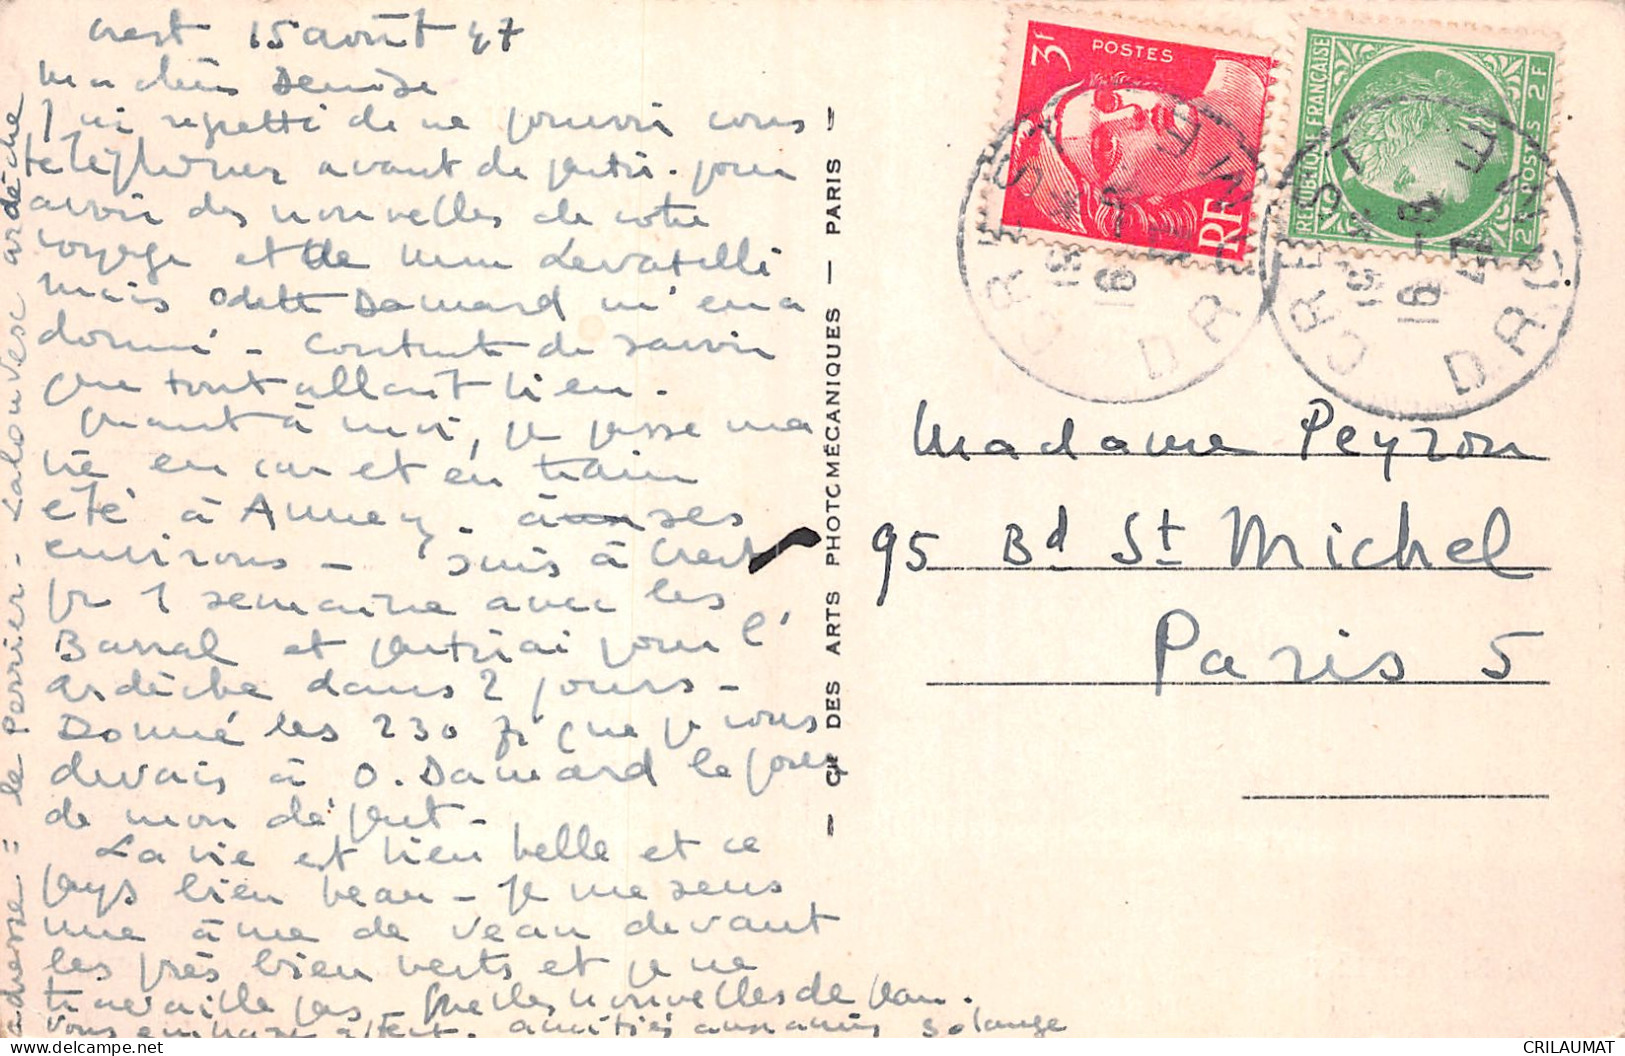 Crest 15 août 47
Ma chère Denise
J'ai regretté de ne pouvoir vous
téléphoner avant de partir. pour
avoir des nouvelles de votre
voyage et de Mme Levatelli
mais Odette Damard m'en a
donné - Contente de savoir
que tout allant bien.
Quant à moi, je passe ma
vie en car et en train
été à Annecy. à ses
environs - suis à Crest
pr 1 semaine avec les
Barral et partirai pour l'
Ardèche dans 2 jours -
Donné les 230 fr que je vous
devais à O. Damard le jour
de mon départ -
La vie est bien belle et ce
pays bien beau - Je me sens
une âme de veau devant
les prés bien verts et je ne
travaille pas - Quelles nouvelles de Jean.
Vous embrasse affect. amitiés aux amis Solange
adresse = le Perrier - Lalouvesc ardèche
Cie DES ARTS PHOTOMÉCANIQUES — PARIS
3F POSTES
RF
REPUBLIQUE FRANÇAISE
2F POSTES 2F
CREST
16 - 8
47
DRÔME
CREST
16 - 8
47
DRÔME
Madame Peyron
95 Bd St Michel
Paris 5
CRILAUMAT